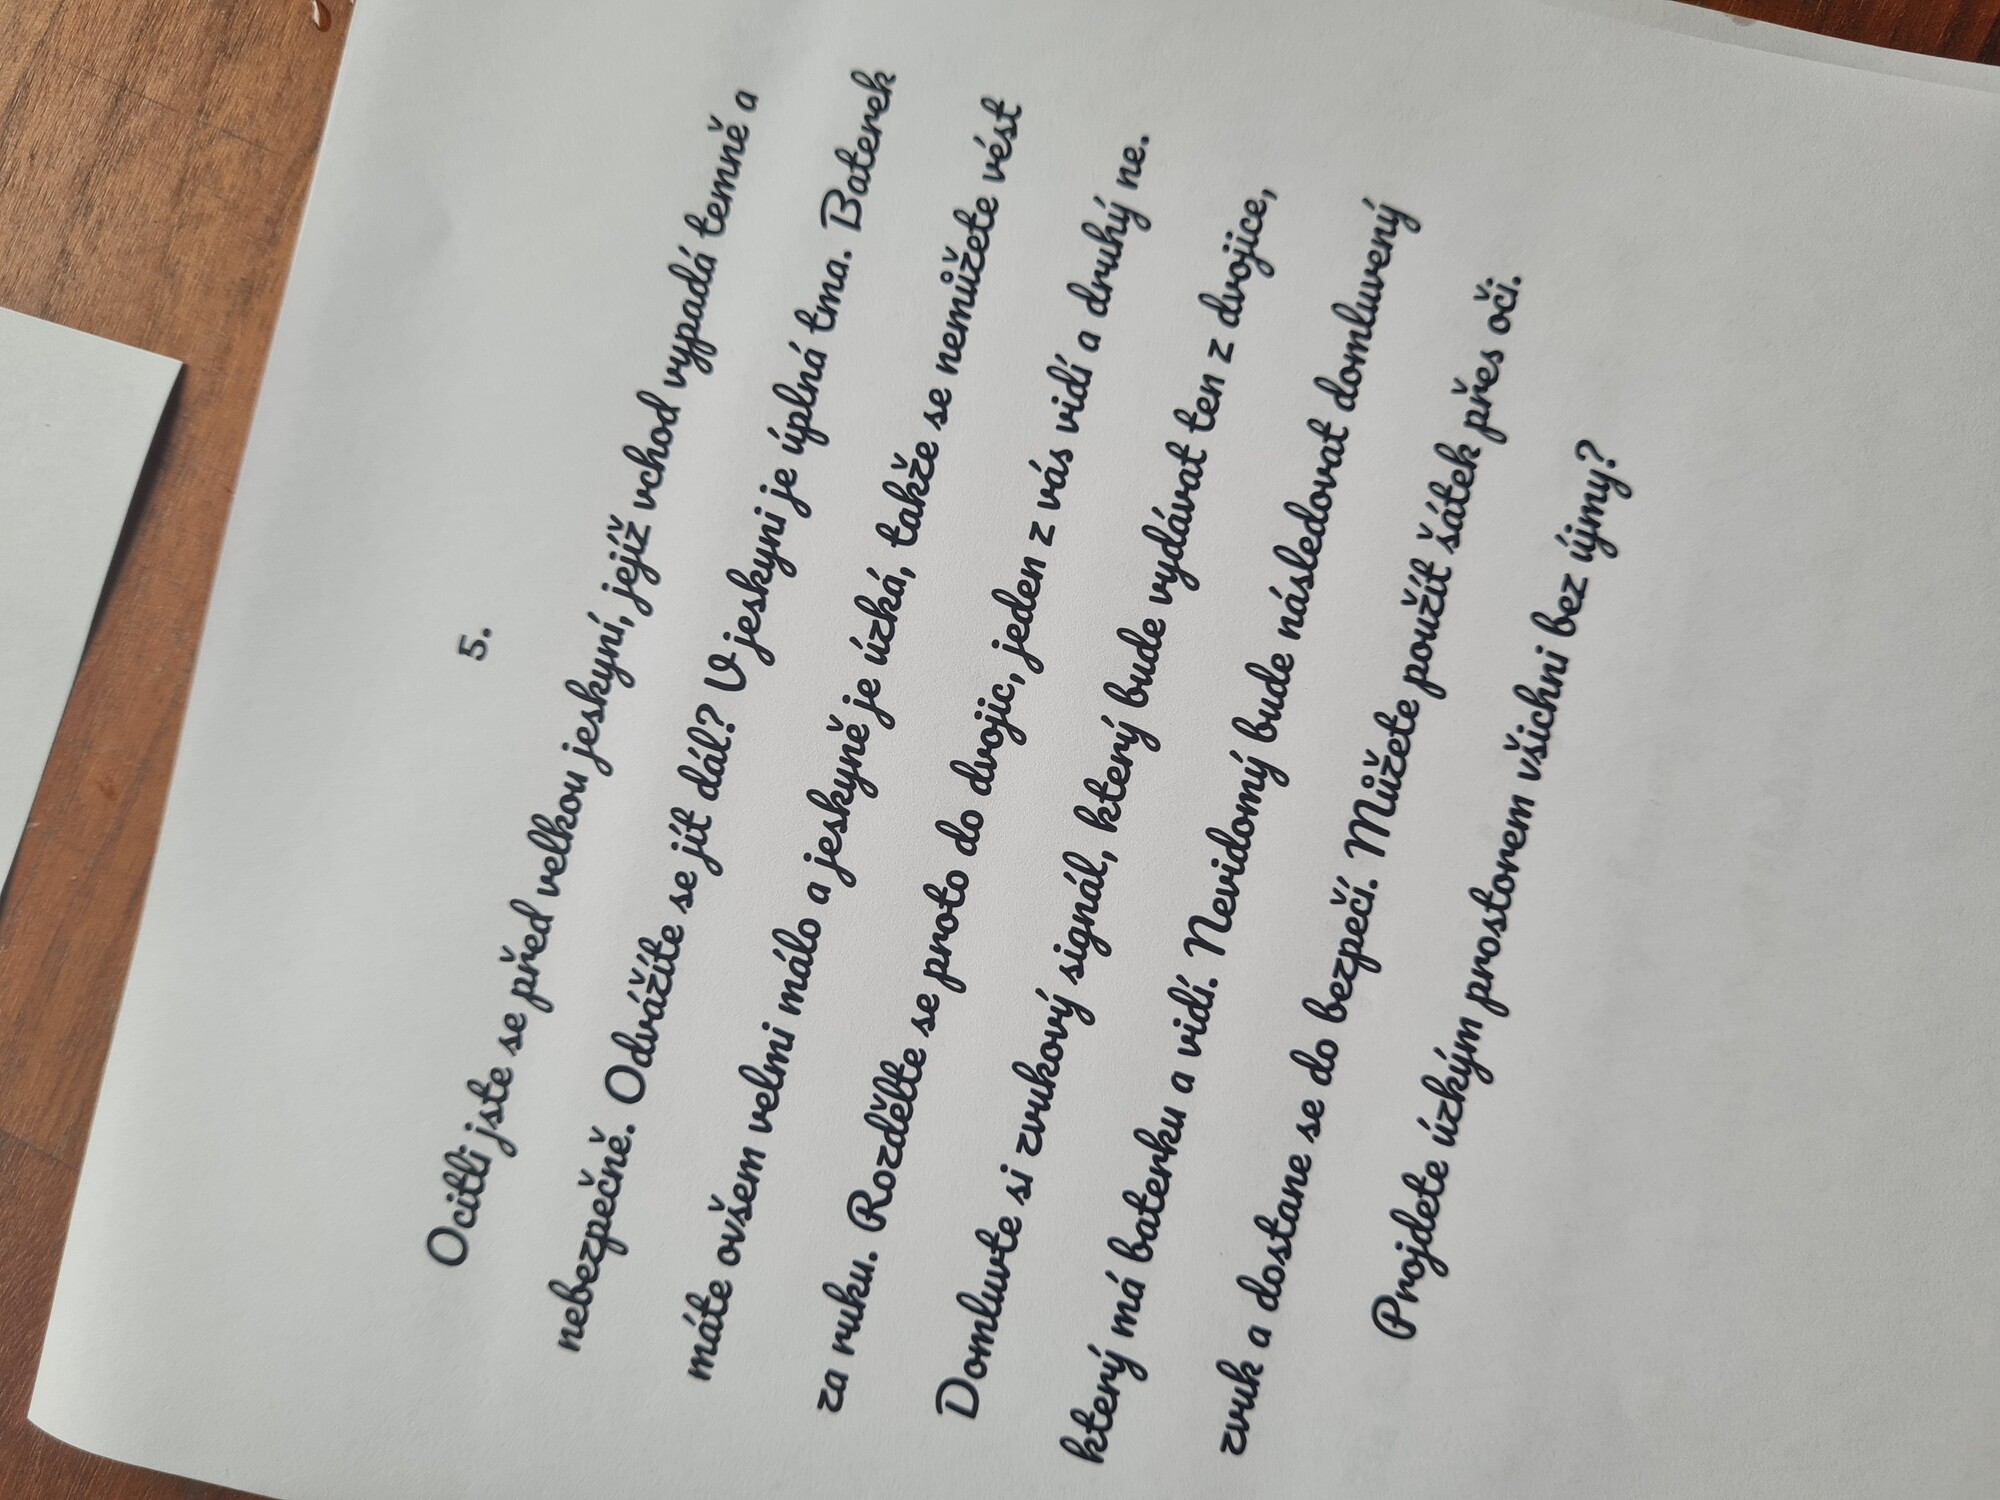 5.
Ocitli jste se před velkou jeskyní, jejíž vchod vypadá temně a
nebezpečně. Odvážíte se jít dál? V jeskyni je úplná tma. Baterek
máte ovšem velmi málo a jeskyně je úzká, takže se nemůžete vést
za ruku. Rozdělte se proto do dvojic, jeden z vás vidí a druhý ne.
Domluvte si zvukový signál, který bude vydávat ten z dvojice,
který má baterku a vidí. Nevidomý bude následovat domluvený
zvuk a dostane se do bezpečí. Můžete použít šátek přes oči.
Projdete úzkým prostorem všichni bez újmy?